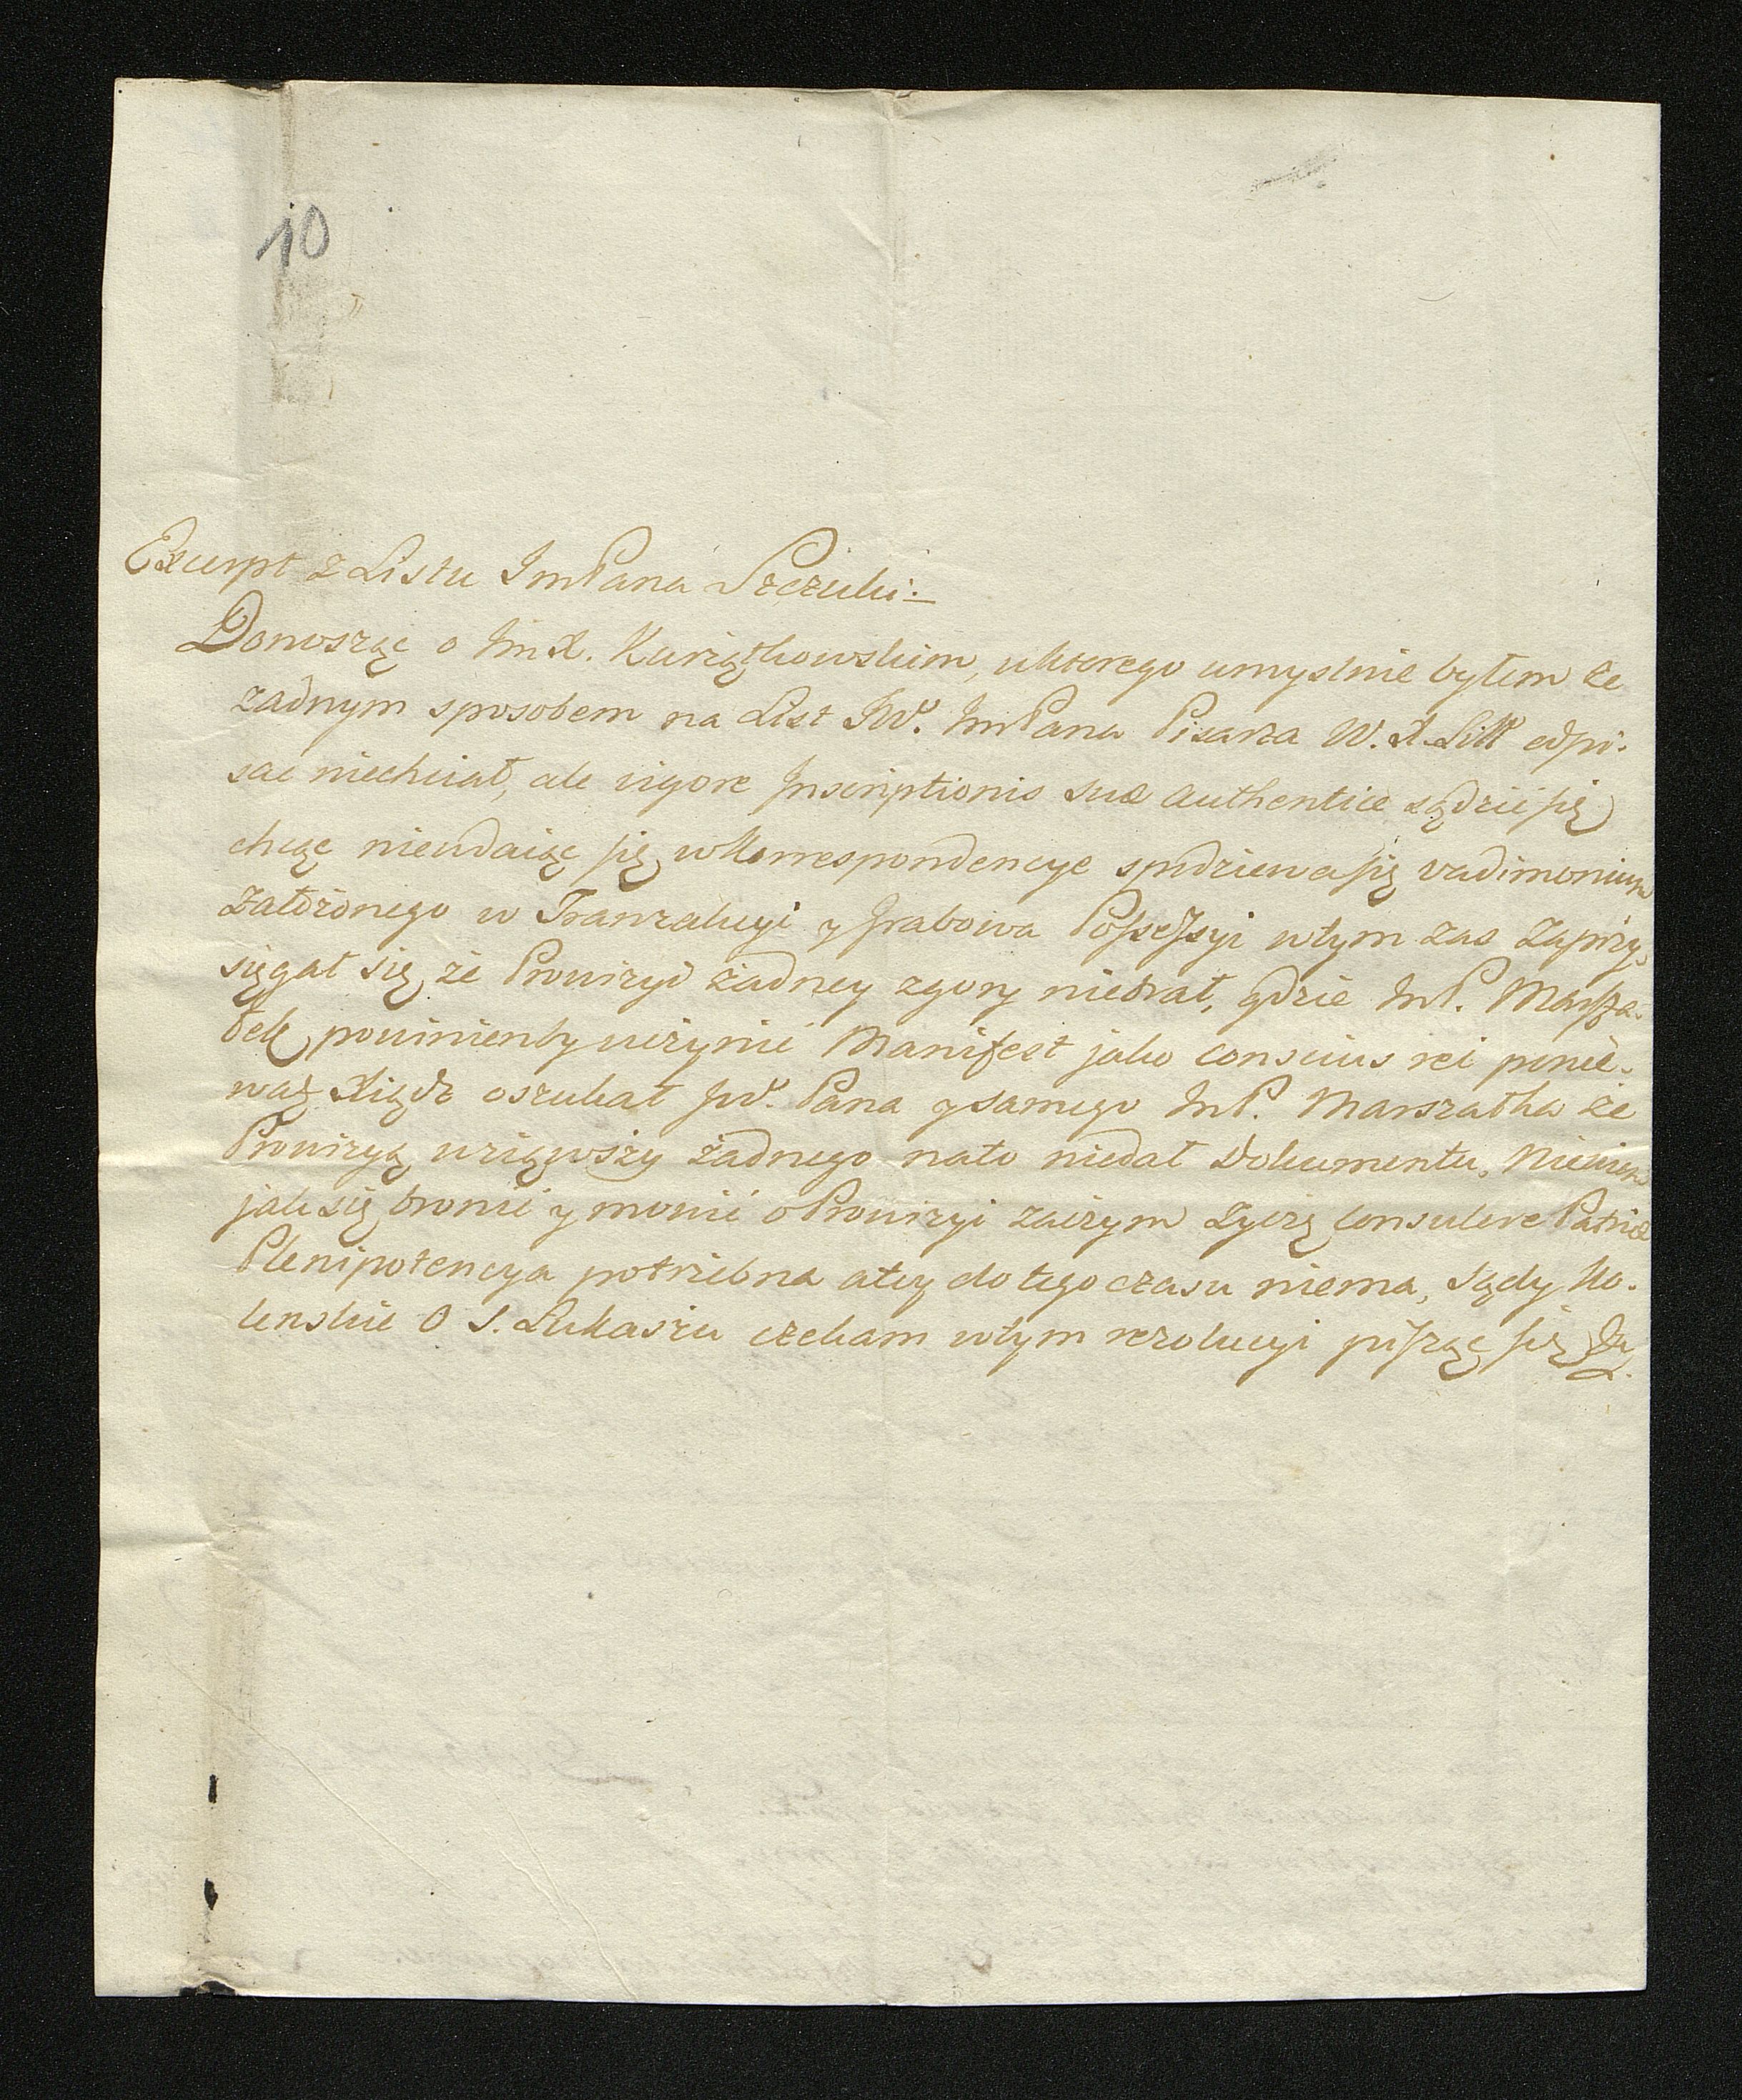 10
Excerpt z Listu ImPana Szczuki:
Donoszę o ImX. Kurządkowskim, uktorego umyslnie byłem że
żadnym sposobem na List JW. ImPana Pisarza W. X. Litt odpi-
sac niechciał, ale vigore Inscriptionis suæ authenticæ sądzić się
chcąc niewdaiąc się wkorrespondencye spodziewa się vadimonium
założonego w Tranzakcyi y Possessyi wtym zas zaprzy-
sięgał się że Prowizyi żadney zgory niebrał, gdzie ImP. Marsza-
łek powinienby uczynić Manifest jako conscius rei ponie-
waż Xiądz oszukał JW. Pana ysamego ImP. Marszałka że
Prowizyą wziąwszy żadnego nato niedał Dokumentu. Niewiem
jak się bronić y mowić oProwizyi zaczym życzę consulere Patriæ
Plenipotencya potrzebna atey do tego czasu niema, Sądy Ko-
lenskie O S. Łukaszu czekam wtym rezolucyi pisząc się